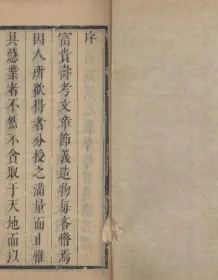 序
富貴壽考文章節義造物每吝惜焉
因人所欲得者分授之滿量而止惟
具慧業者不然不貪取于天地而以